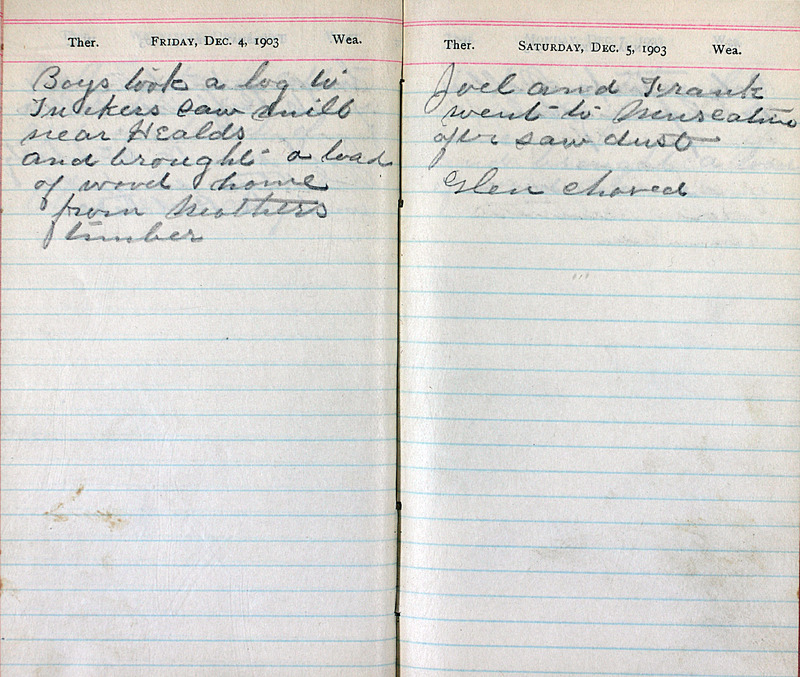 Ther. FRIDAY, DEC. 4, 1903 Wea.
Boys took a log to
Tuckers saw mill
near Healds
and brought a load
of wood home
from Mothers
timber
Ther. SATURDAY, DEC. 5, 1903 Wea.
Joel and Frank
went to Muscatine
after saw dust
Glen chored